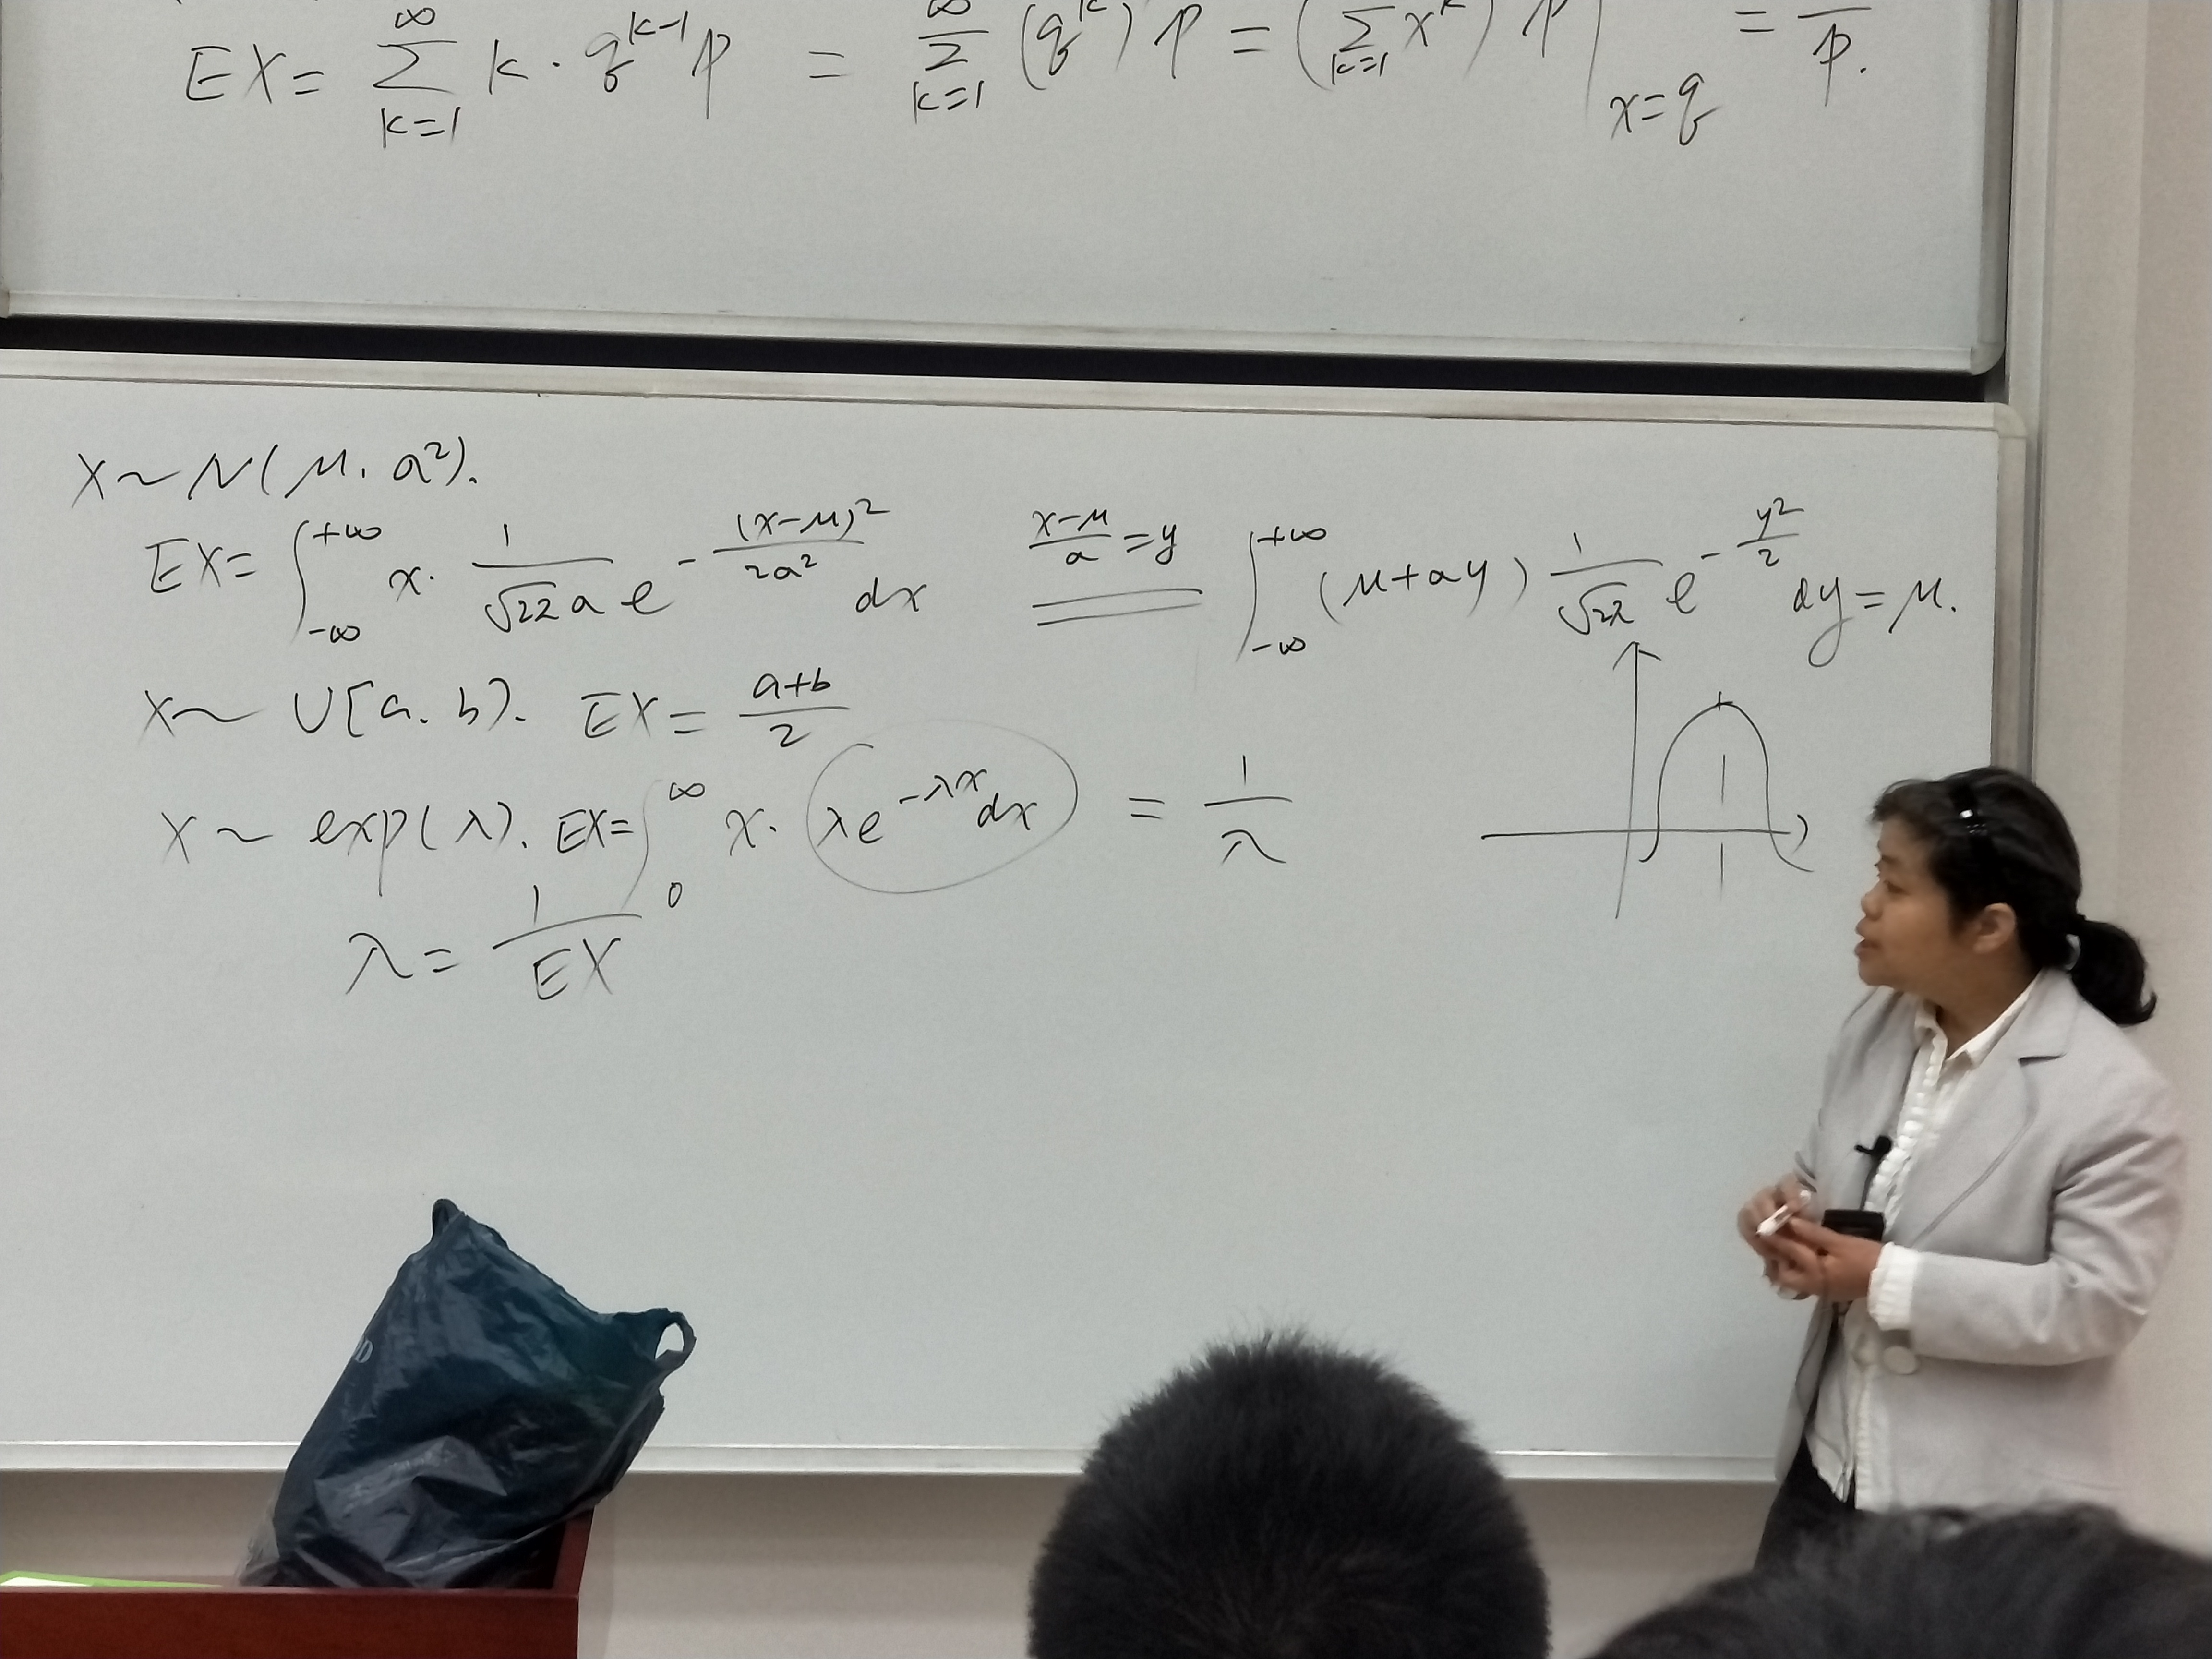 EX = ∑_{k=1}^{∞} k · q^{k-1} p = ∑_{k=1}^{∞} (q^k) p = (∑_{k=1} x^k) p |_{x=q} = — p.
X ~ N(μ, a²).
EX = ∫_{-∞}^{+∞} x · 1/(√2π a) e^{-(x-μ)²/2a²} dx (x-μ)/a = y ∫_{-∞}^{+∞} (μ+ay) 1/√2π e^{-y²/2} dy = μ.
X ~ U[a, b). EX = (a+b)/2
X ~ exp(λ). EX = ∫_0^∞ x · λe^{-λx} dx = 1/λ
λ = 1/EX